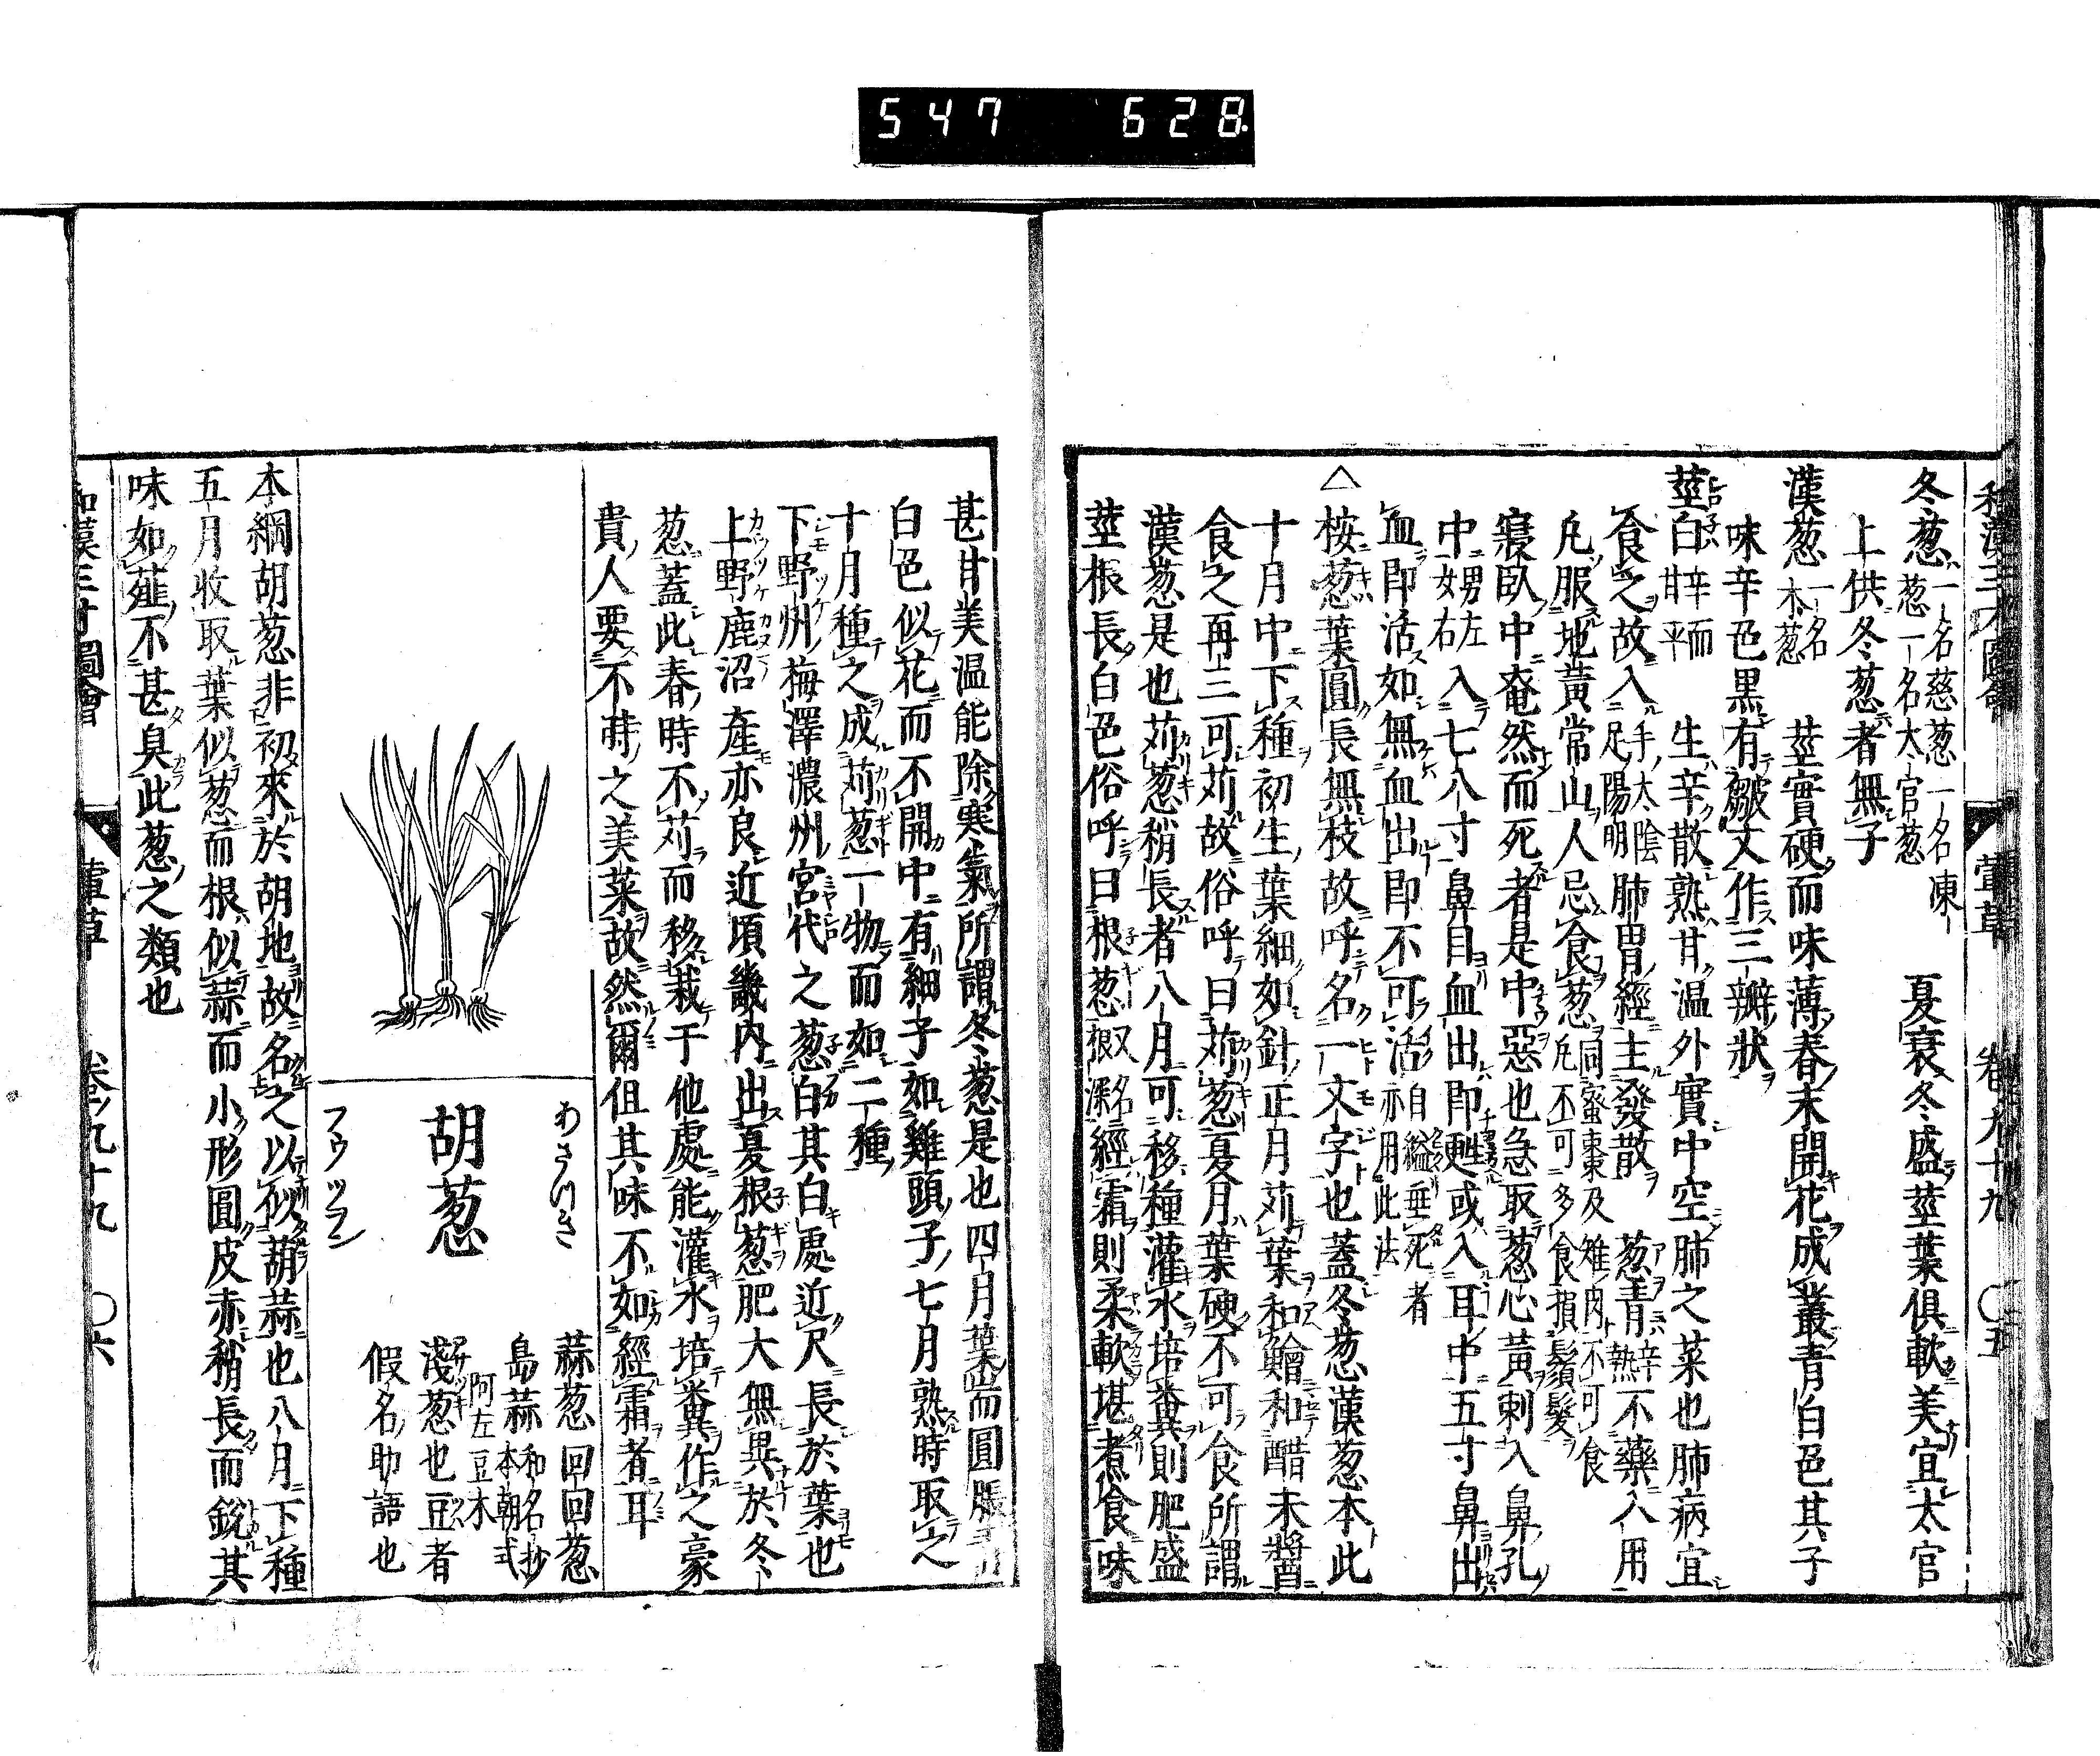 547 628
和漢三才圖會 葷草 卷ノ九十九 〇五
冬葱 一名慈葱 一名凍葱 一名太官葱 夏衰冬盛莖葉俱軟美宜太官
上供冬葱者無子
漢葱 一名木葱 莖實硬而味薄春末開花成叢青白色其子
味辛色黒有皺文作三瓣狀
莖白 辛而甘平 生辛散熟甘温外實中空肺之菜也肺病宜
食之故入手太陰足陽明肺胃經主發散 葱青 辛熱 不藥入用
凡服地黃常山人忌食葱 同蜜棗及雉肉不可食凡不可多食損鬚髮
寢臥中奄然而死者是中惡也急取葱心黃刺入鼻孔
中 男左女右 入七八寸鼻目血出即甦或入耳中五寸鼻出
血即活如無血出即不可活 自縊垂死者亦用此法
△桉葱葉圓長無枝故呼名一文字也蓋冬葱漢葱本此
十月中下種初生葉細如針正月苅葉和鱠和醋未醬
食之再三可苅故俗呼曰苅葱夏月葉硬不可食所謂
漢葱是也苅葱稍長者八月可移種灌水培糞則肥盛
莖根長白色俗呼曰根葱 又名根深 經霜則柔軟堪煮食味
甚甘美温能除寒氣所謂冬葱是也四月葉耑圓脹
白色似花而不開中有細子如雞頭子七月熟時取之
十月種之成苅葱一物而如二種
下野州梅澤濃州宮代之葱白其白處近尺長於葉也
上野鹿沼產亦良近頃畿内出夏根葱肥大無異於冬
葱蓋此春時不苅而移栽于他處能灌水培糞作之豪
貴人要不時之美菜故然爾但其味不如經霜者耳
あさつき
胡葱
フウ ツヲン
蒜葱 回回葱
島蒜 和名抄 本朝式
阿左豆木
淺葱也豆者
假名助語也
本綱胡葱非初來於胡地故名之以似葫蒜也八月下種
五月收取葉似葱而根似蒜而小形圓皮赤稍長而銳其
味如薤不甚臭此葱之類也
和漢三才圖會 葷草 卷ノ九十九 〇六